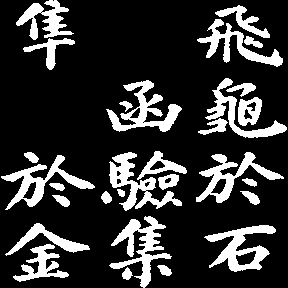 飛龜於石
函驗集
隼於金